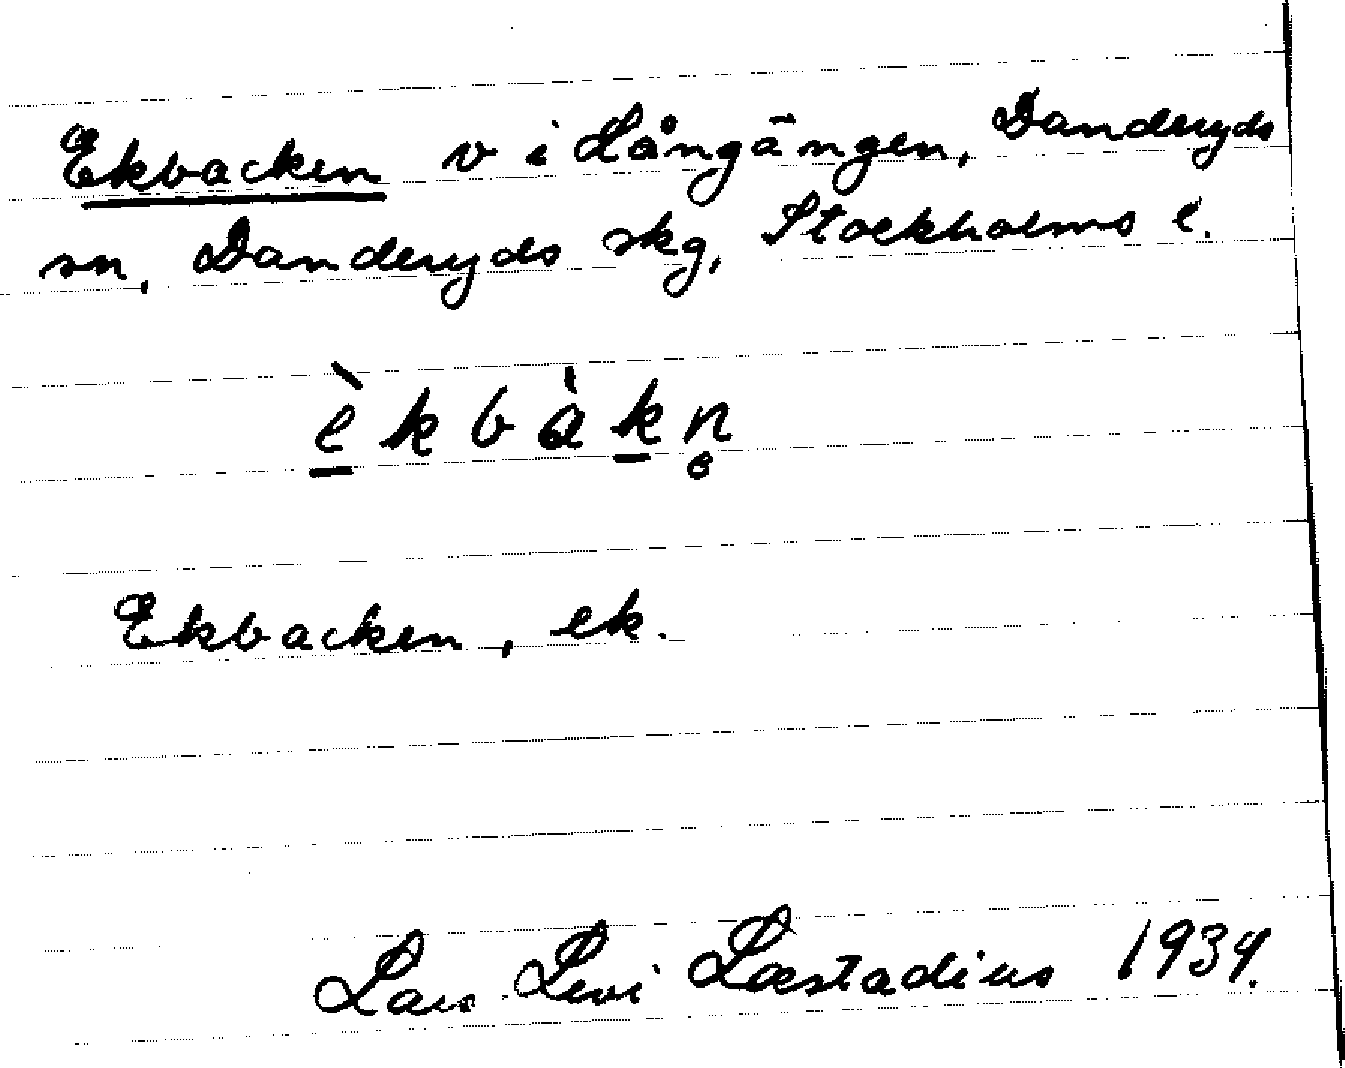 Ekbacken v i Långängen, Danderyds
sn, Danderyds skg, Stockholms l.
èkbàkn̥
Ekbacken, ek.
Lars Levi Læstadius 1934.